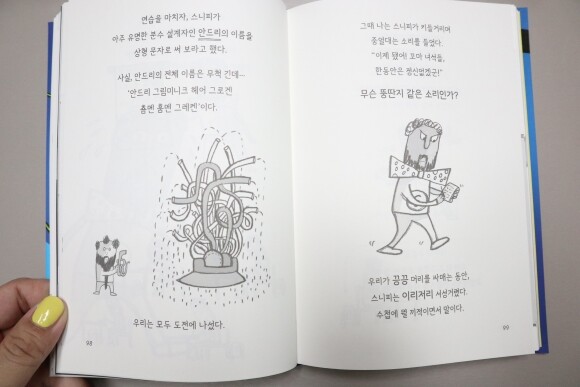 연습을 마치자, 스니피가
아주 유명한 분수 설계자인 안드리의 이름을
상형 문자로 써 보라고 했다.
사실, 안드리의 전체 이름은 무척 긴데―
'안드리 그림미니크 헤어 그로겐
홈멘 홈멘 그레켄'이다.
우리는 모두 도전에 나섰다.
98
그때 나는 스니피가 키득거리며
중얼대는 소리를 들었다.
"이제 됐어! 꼬마 녀석들,
한동안은 정신없겠군!"
무슨 뚱딴지 같은 소리인가?
우리가 끙끙 머리를 싸매는 동안,
스니피는 이리저리 서성거렸다.
수첩에 뭘 끼적이면서 말이다.
99